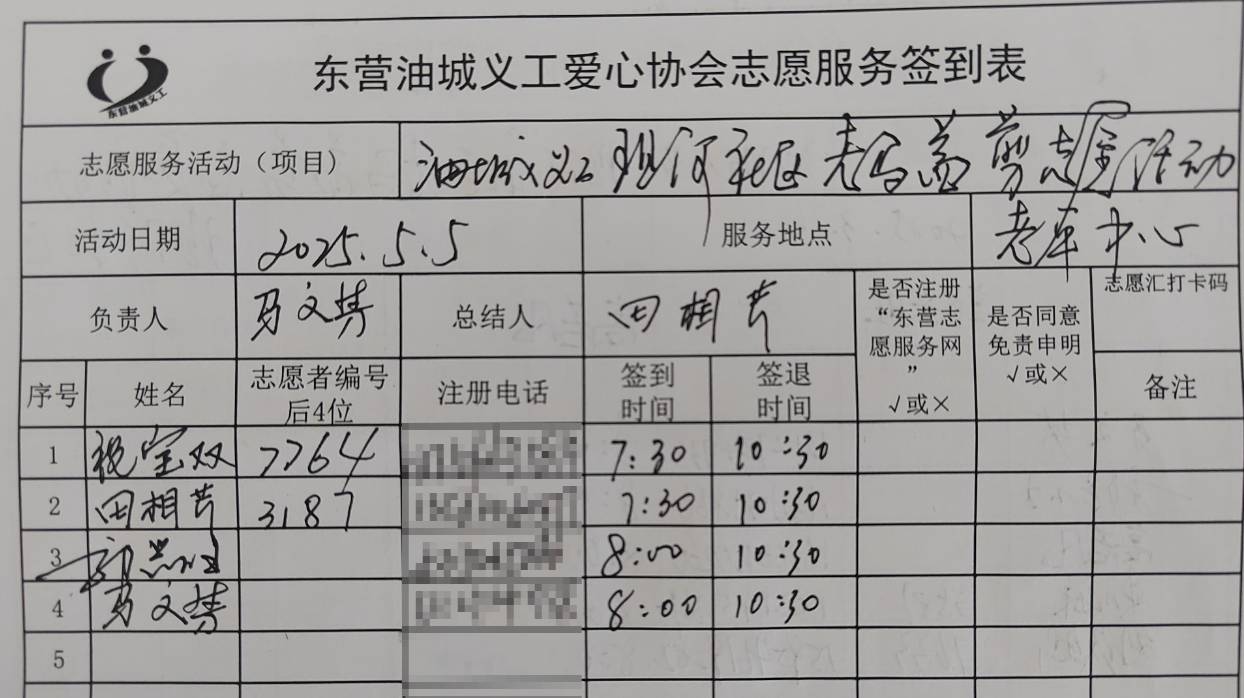 东营油城义工
东营油城义工爱心协会志愿服务签到表
志愿服务活动（项目） 油城义工现河社区老年益剪志愿活动
活动日期 2025.5.5 服务地点 老年中心
负责人 马文梦 总结人 田相芹 是否注册“东营志愿服务网”√或× 是否同意免责申明√或× 志愿汇打卡码
序号 姓名 志愿者编号后4位 注册电话 签到时间 签退时间 备注
1 祝宝双 7764 7:30 10:30
2 田相芹 3187 7:30 10:30
3 8:00 10:30
4 马文梦 8:00 10:30
5